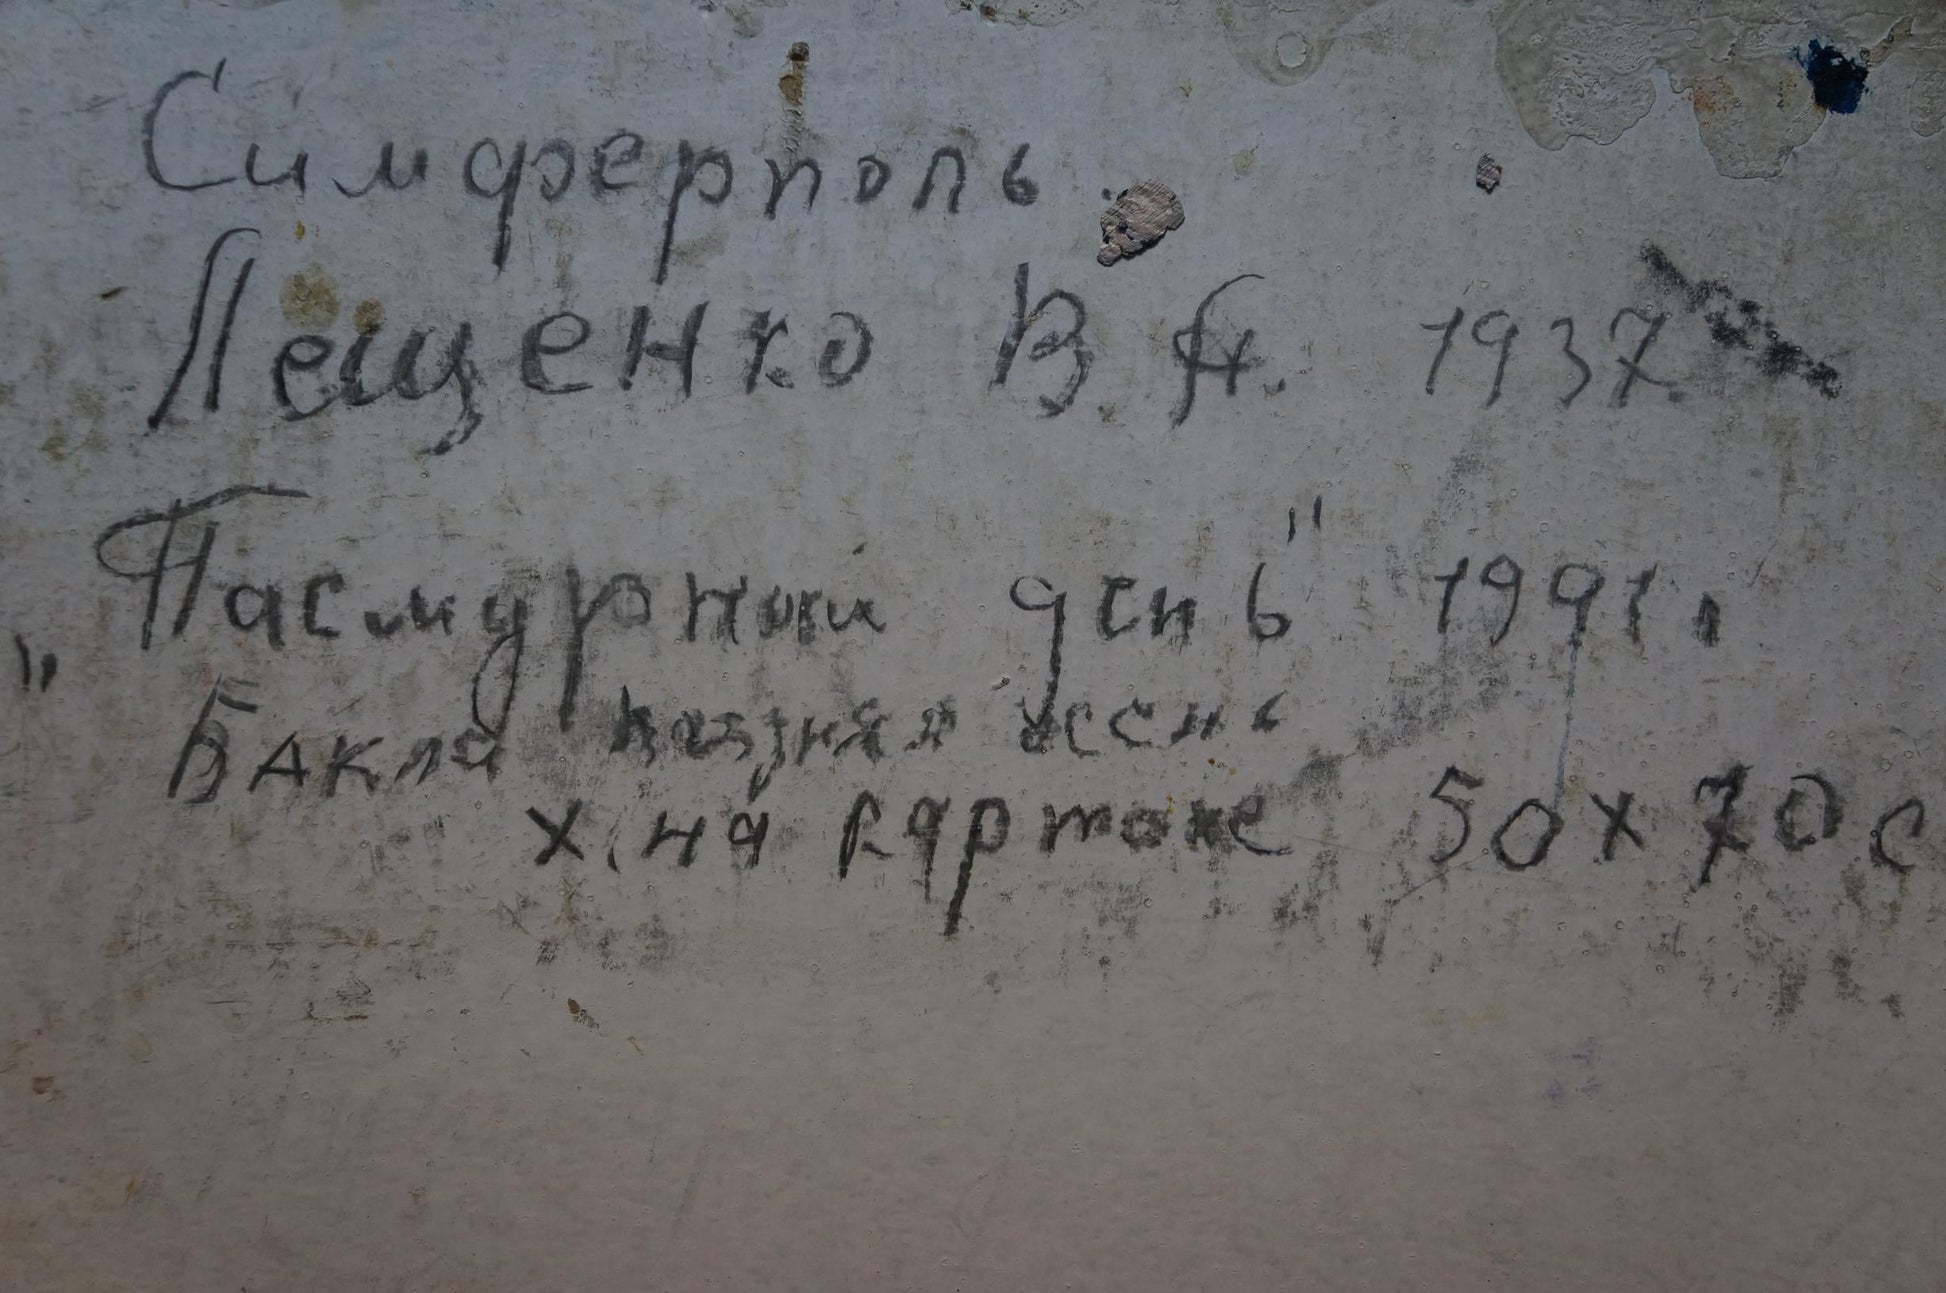 Симферполь.
Лещенко В. А. 1937.
"Пасмурный день" 1991.
Бакла поздняя осень
х. на картоне 50х70 с